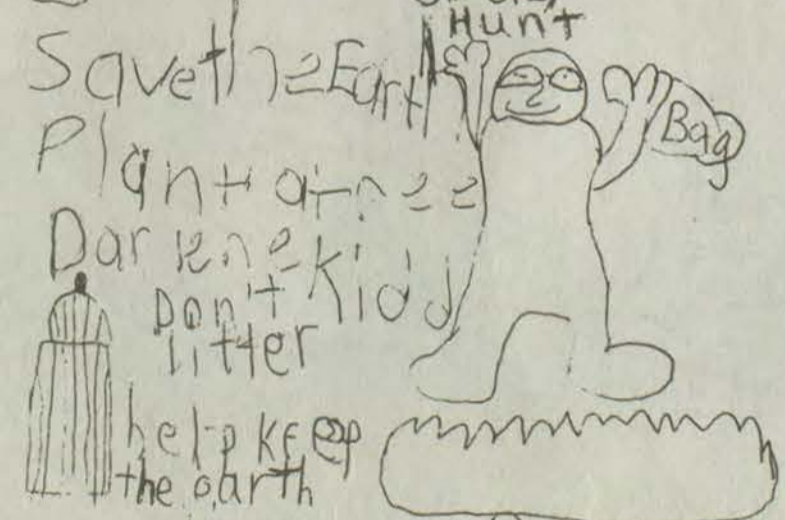 Hunt
Save the Earth
Plant a tree
Darlene Kidd
Don't
litter
Bag
help keep
the earth